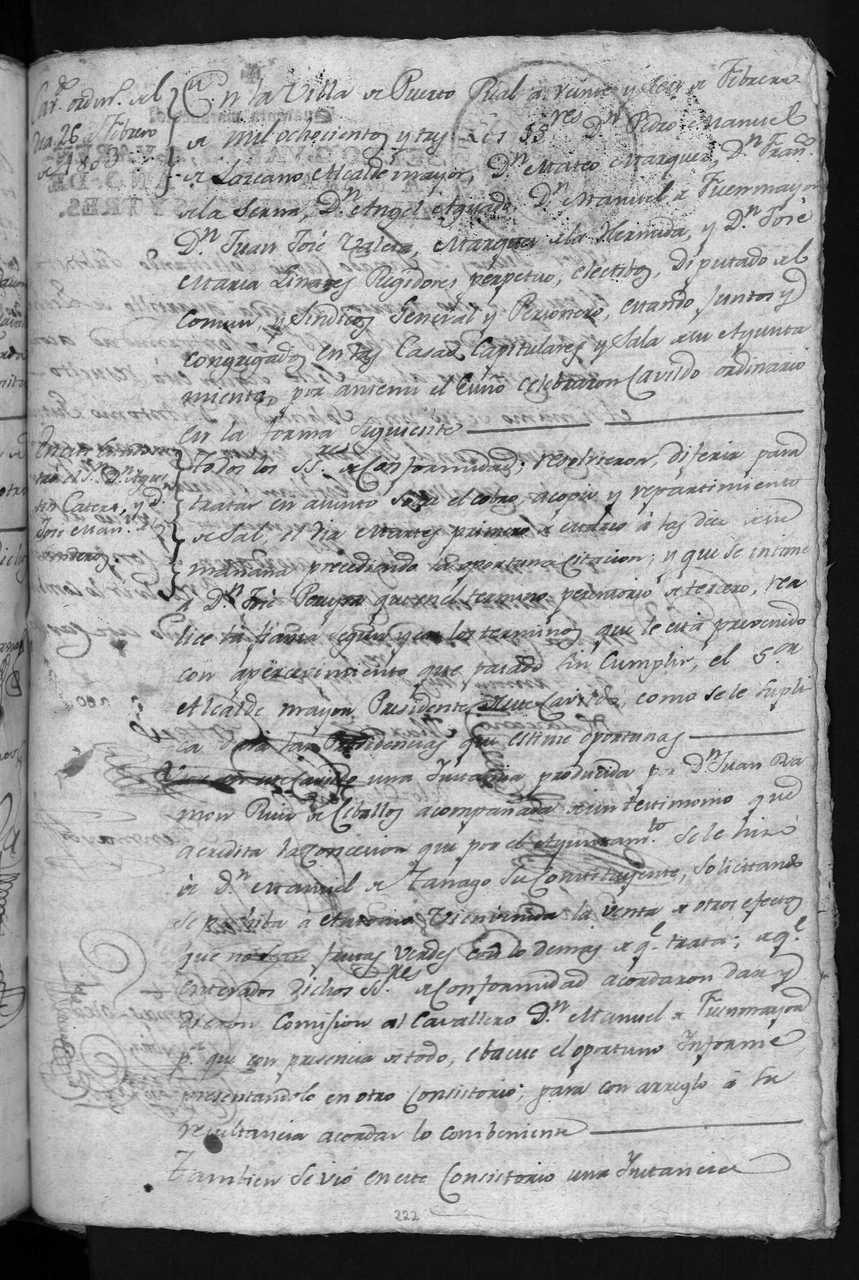 Cav.do ordin.o del
Dia 26 de Febrero
de 1803
En la Villa de Puerto Real a veinte y seis de Febrero
de mil ochocientos y tres Los SS.res D.n Pedro Manuel
de Lorcano Alcalde mayor, D.n Mateo Marquez, D.n Fran.co
de la Serna, D.n Angel Aguado, D.n Manuel de Fuenmayor
D.n Juan José Marquez de la Hermida, y D.n José
Maria Linares Regidores perpetuo, electibos, Diputado del
comun, y Sindicos General y Personero, estando juntos y
congregados en las Casas Capitulares y Sala de su Ayunta
miento, por antemi el Essno celebraron Cavildo ordinario
en la forma siguiente
Todos los SS.res de Conformidad, resolvieron, diferir para
tratar en asunto sobre el cobro, acopio y repartimiento
de Sal, el dia Martes primero de Marzo á las diez de su
mañana precediendo la oportuna Citacion; y que se intime
á D.n José Pereyra que en el termino perentorio de tercero, rea
lice la fianza segun y en los terminos que le está prevenido
con apercevimiento que pasado sin Cumplir, el S.or
Alcalde mayor Presidente de este Cavildo, como se le supli
ca dará las Providencias que estime oportunas
en este Cavildo una Instancia producida p.r D.n Juan Ra
mon Ruiz de Ceballos acompañada de un testimonio que
acredita la Concesion que por el Ayuntam.to se le hizo
á D.n Manuel de Tanago su Constituyente, solicitando
se prohiba á la venta de otros efectos
que no sean frutas verdes con lo demas de q.e trata; de q.e
enterados dichos SS.res de Conformidad acordaron dar y
dieron Comision al Cavallero D.n Manuel de Fuenmayor
p.a que con presencia de todo, ebaque el oportuno Informe
presentandolo en otro Consistorio; para con arreglo á su
resultancia acordar lo combeniente
Tambien se vió en este Consistorio una Instancia
222